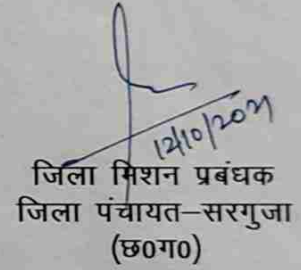 12/10/2021
जिला मिशन प्रबंधक
जिला पंचायत–सरगुजा
(छ०ग०)